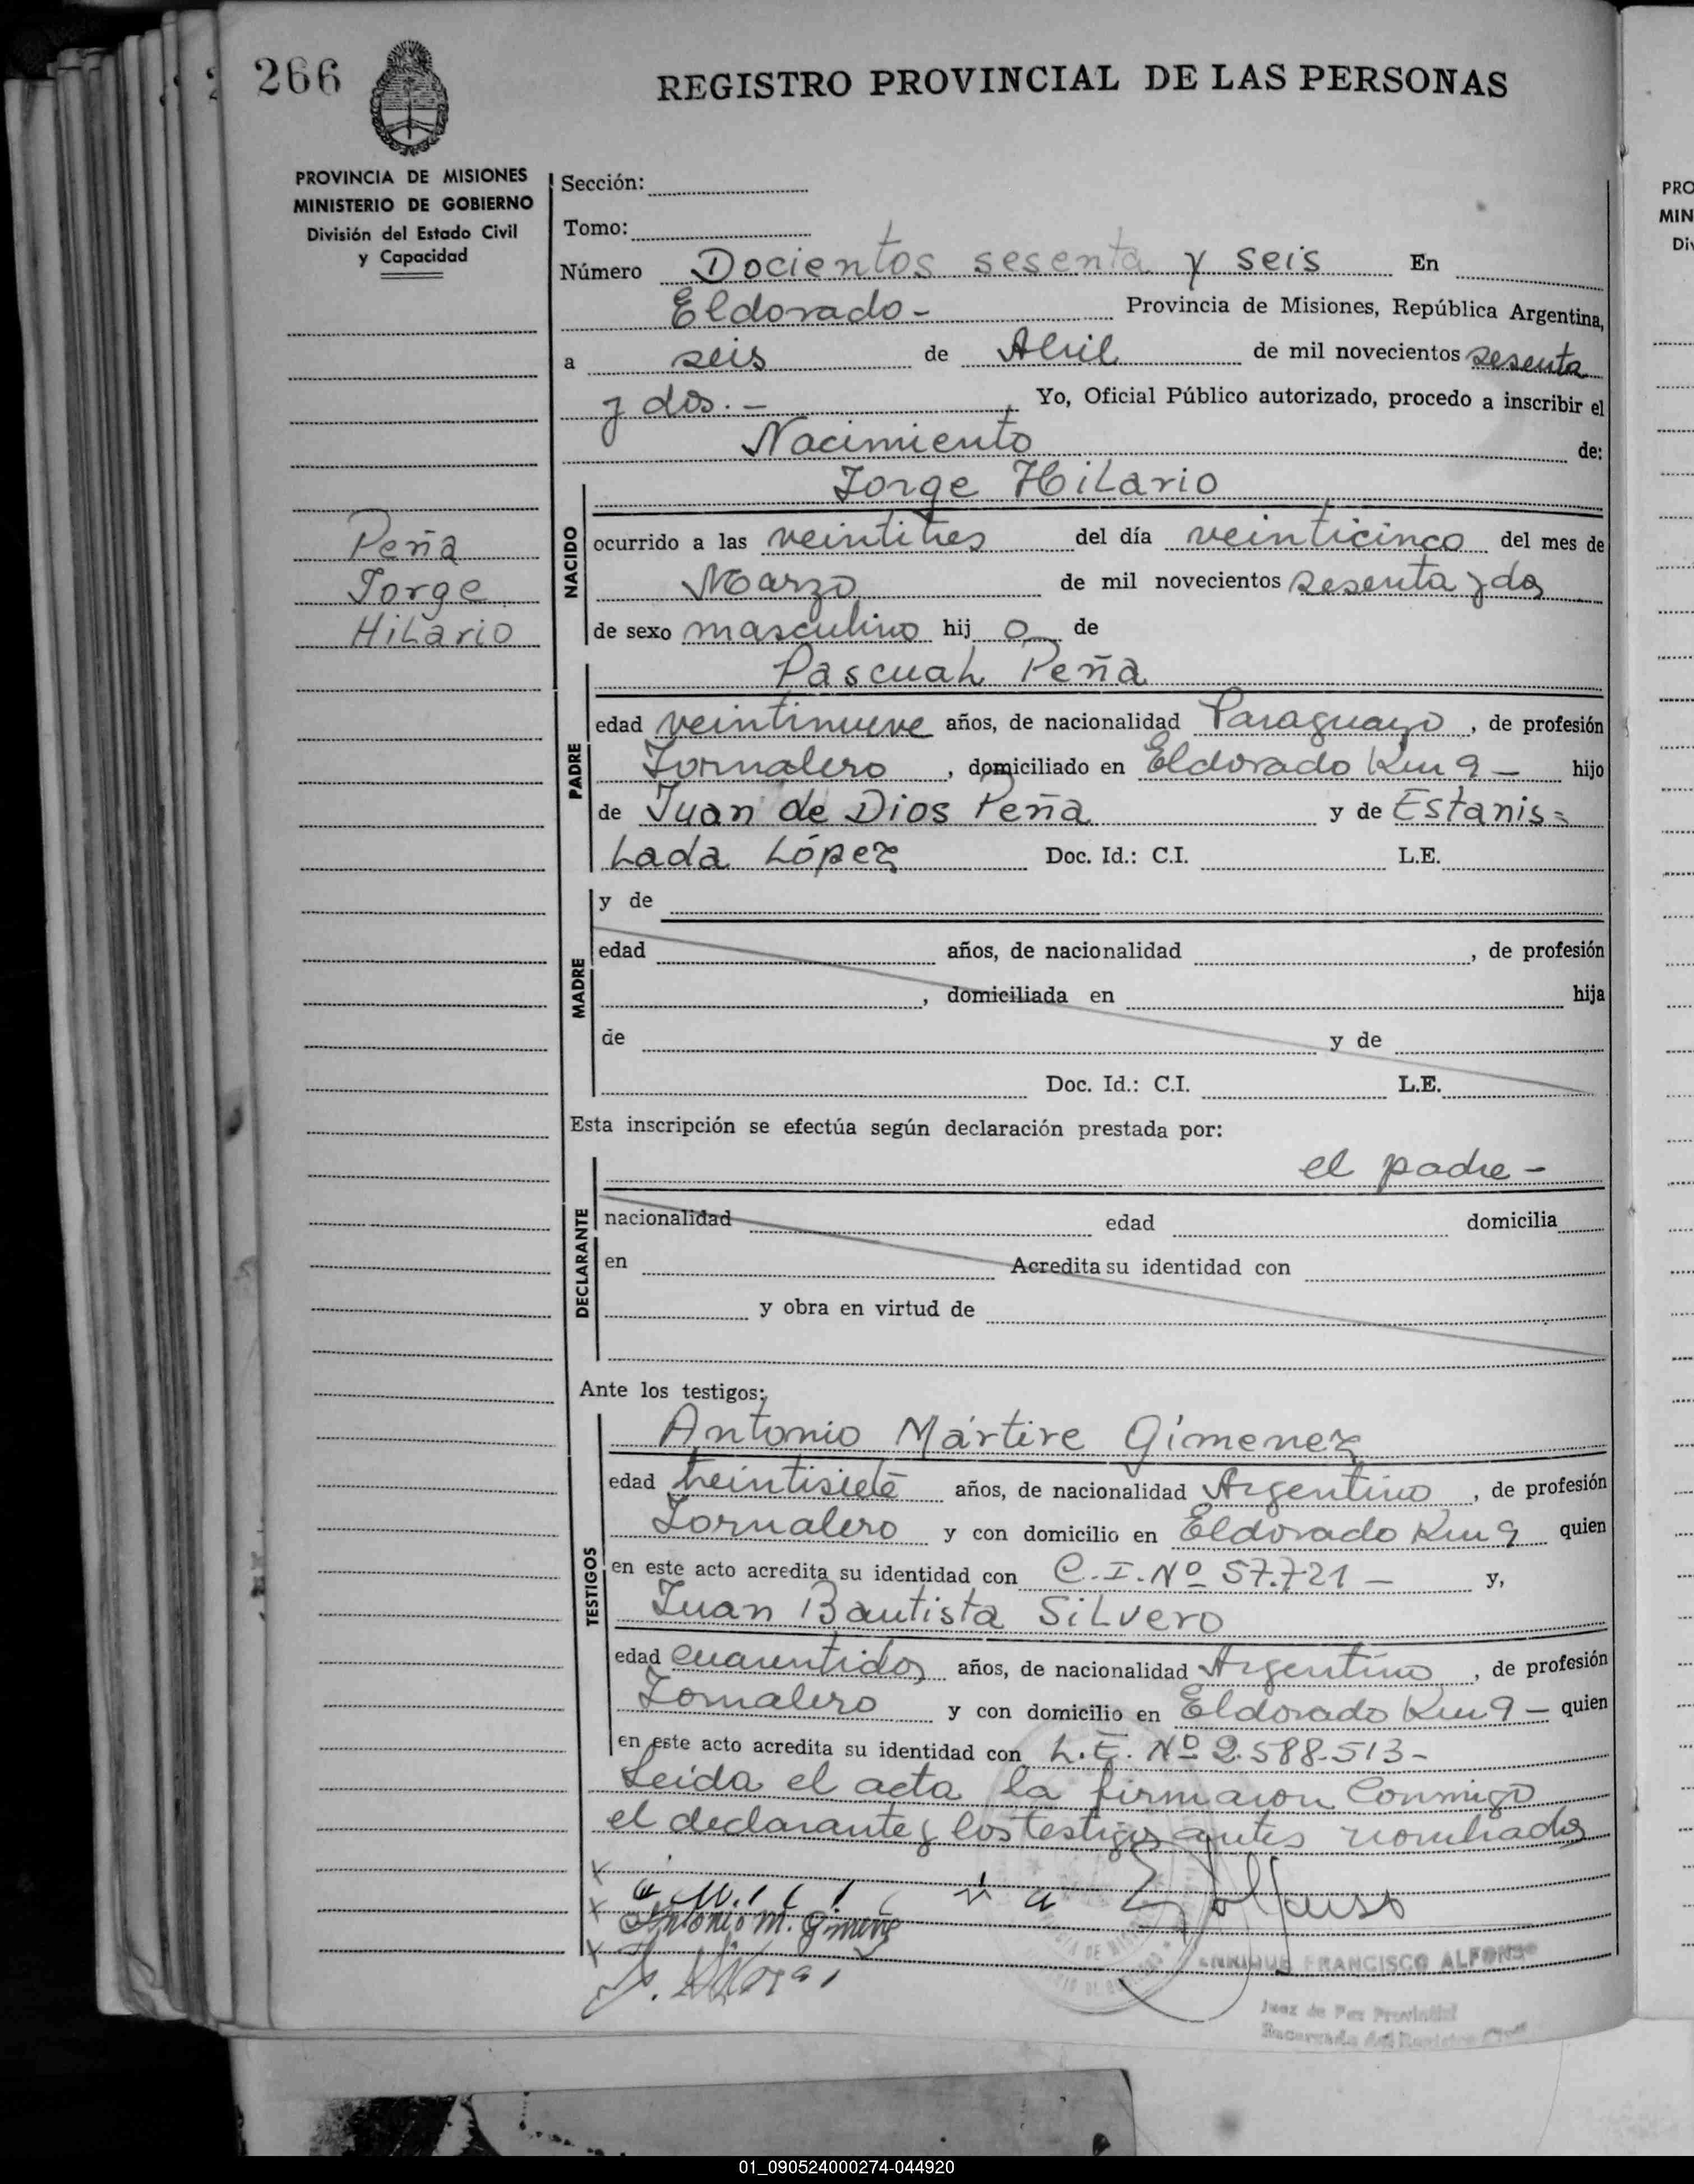 266
REGISTRO PROVINCIAL DE LAS PERSONAS
PROVINCIA DE MISIONES
MINISTERIO DE GOBIERNO
División del Estado Civil
y Capacidad
Sección:
Tomo:
Número Docientos sesenta y seis En
Eldorado - Provincia de Misiones, República Argentina,
a seis de Abril de mil novecientos sesenta
y dos. - Yo, Oficial Público autorizado, procedo a inscribir el
Nacimiento de:
Jorge Hilario
Peña
Jorge
Hilario
NACIDO
ocurrido a las veintitres del día veinticinco del mes de
Marzo de mil novecientos sesenta y dos
de sexo masculino hij o de
Pascual Peña
PADRE
edad veintinueve años, de nacionalidad Paraguayo, de profesión
Jornalero, domiciliado en Eldorado Km 9 - hijo
de Juan de Dios Peña y de Estanis=
lada López Doc. Id.: C.I. L.E.
MADRE
y de
edad años, de nacionalidad , de profesión
, domiciliada en hija
de y de
Doc. Id.: C.I. L.E.
Esta inscripción se efectúa según declaración prestada por:
el padre -
DECLARANTE
nacionalidad edad domicilia
en Acredita su identidad con
y obra en virtud de
Ante los testigos:
TESTIGOS
Antonio Mártire Gimenez
edad treintisiete años, de nacionalidad Argentino, de profesión
Jornalero y con domicilio en Eldorado Km 9 quien
en este acto acredita su identidad con C.I. Nº 57.721 - y,
Juan Bautista Silvero
edad cuarentidos años, de nacionalidad Argentino, de profesión
Jornalero y con domicilio en Eldorado Km 9 - quien
en este acto acredita su identidad con L.E. Nº 2.588.513 -
Leida el acta la firmaron conmigo
el declarante y los testigos antes nombrados
Antonio M. Gimenez
ENRIQUE FRANCISCO ALFONSO
Juez de Paz Provincial
Encargado del Registro Civil
PRO
MIN
Div
01_090524000274-044920